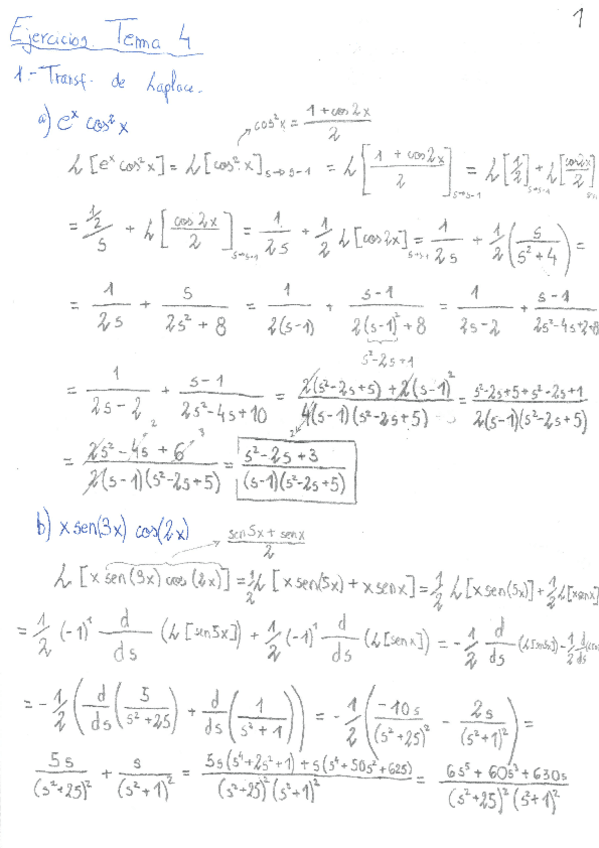 1
Ejercicios Tema 4
1.- Transf. de Laplace.
a) eˣ cos²x
cos²x = (1+cos2x)/2
L[eˣ cos²x] = L[cos²x]_{s→s-1} = L[(1+cos2x)/2]_{s→s-1} = L[1/2]_{s→s-1} + L[cos2x/2]
= (1/2)/s + L[cos2x/2]_{s→s-1} = 1/(2s) + 1/2 L[cos2x]_{s→s-1} = 1/(2s) + 1/2 (s/(s²+4)) =
= 1/(2s) + s/(2s²+8) = 1/(2(s-1)) + (s-1)/(2(s-1)²+8) = 1/(2s-2) + (s-1)/(2s²-4s+2+8)
s²-2s+1
= 1/(2s-2) + (s-1)/(2s²-4s+10) = (2(s²-2s+5)+2(s-1)²)/(4(s-1)(s²-2s+5)) = (s²-2s+5+s²-2s+1)/(2(s-1)(s²-2s+5))
= (2s²-4s+6)/(2(s-1)(s²-2s+5)) = (s²-2s+3)/((s-1)(s²-2s+5))
b) x sen(3x) cos(2x)
(sen5x + senx)/2
L[x sen(3x) cos(2x)] = 1/2 L[x sen(5x) + x senx] = 1/2 L[x sen(5x)] + 1/2 L[x senx]
= 1/2 (-1)¹ d/ds (L[sen5x]) + 1/2 (-1)¹ d/ds (L[senx]) = -1/2 d/ds (L[sen5x]) - 1/2 d/ds
= -1/2 (d/ds (5/(s²+25)) + d/ds (1/(s²+1))) = -1/2 (-10s/(s²+25)² - 2s/(s²+1)²) =
5s/(s²+25)² + s/(s²+1)² = (5s(s⁴+2s²+1)+s(s⁴+50s²+625))/((s²+25)²(s²+1)²) = (6s⁵+60s³+630s)/((s²+25)²(s²+1)²)